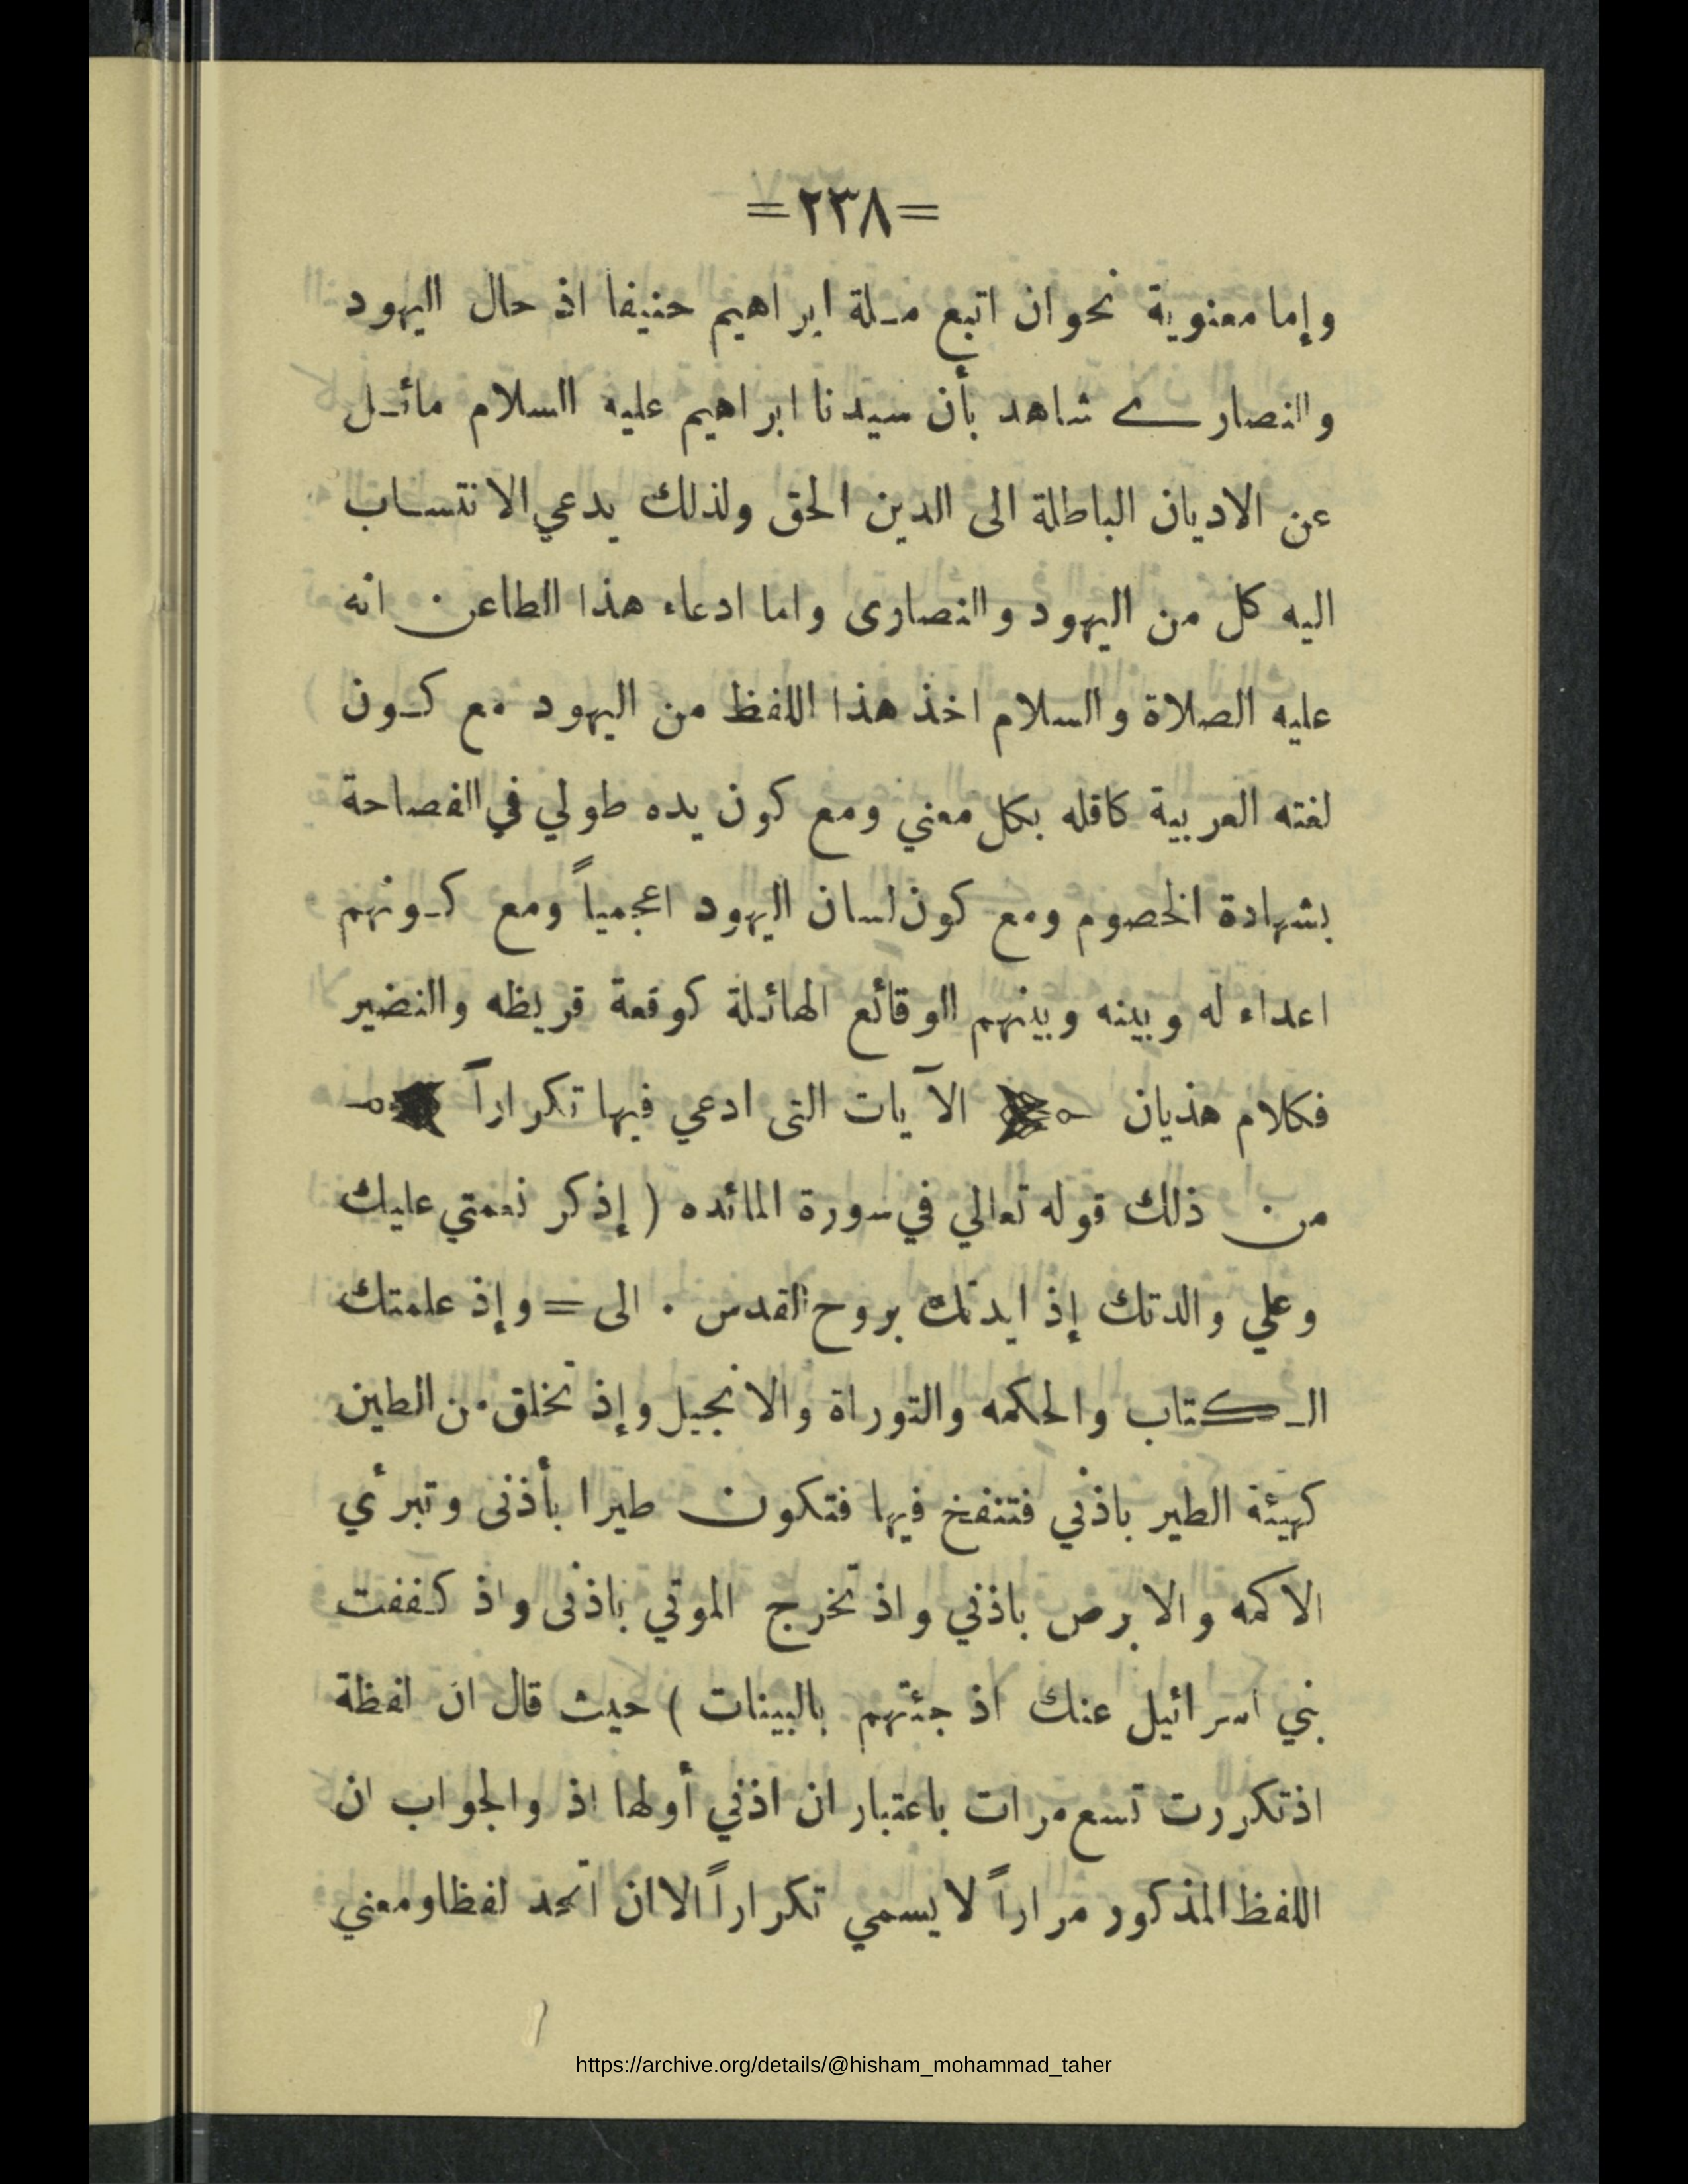 =٢٣٨=
وإما معنوية نحو ان اتبع ملة ابراهيم حنيفا اذ حال اليهود
والنصارے شاهد بأن سيدنا ابراهيم عليه السلام مائل
عن الاديان الباطلة الى الدين الحق ولذلك يدعي الانتساب
اليه كل من اليهود والنصارى واما ادعاء هذا الطاعن انه
عليه الصلاة والسلام اخذ هذا اللفظ من اليهود مع كون
لغته العربية كافله بكل معني ومع كون يده طولي في الفصاحة
بشهادة الخصوم ومع كون لسان اليهود اعجمياً ومع كونهم
اعداء له وبينه وبينهم الوقائع الهائلة كوقعة قريظه والنضير
فكلام هذيان الآيات التى ادعي فيها تكراراً
من ذلك قوله تعالي في سورة المائده ( إذكر نعمتي عليك
وعلي والدتك إذ ايدتك بروح القدس . الى = وإذ علمتك
الكتاب والحكمه والتوراة والانجيل وإذ تخلق من الطين
كهيئة الطير باذني فتنفخ فيها فتكون طيرا بأذنى وتبرأي
الاكمه والابرص باذني واذ تخرج الموتي باذنى واذ كففت
بني اسرائيل عنك اذ جئتهم بالبينات ) حيث قال ان لفظة
اذ تكررت تسع مرات باعتبار ان اذني أولها اذ والجواب ان
اللفظ المذكور مراراً لا يسمي تكراراً الا ان اتحد لفظا ومعني
https://archive.org/details/@hisham_mohammad_taher